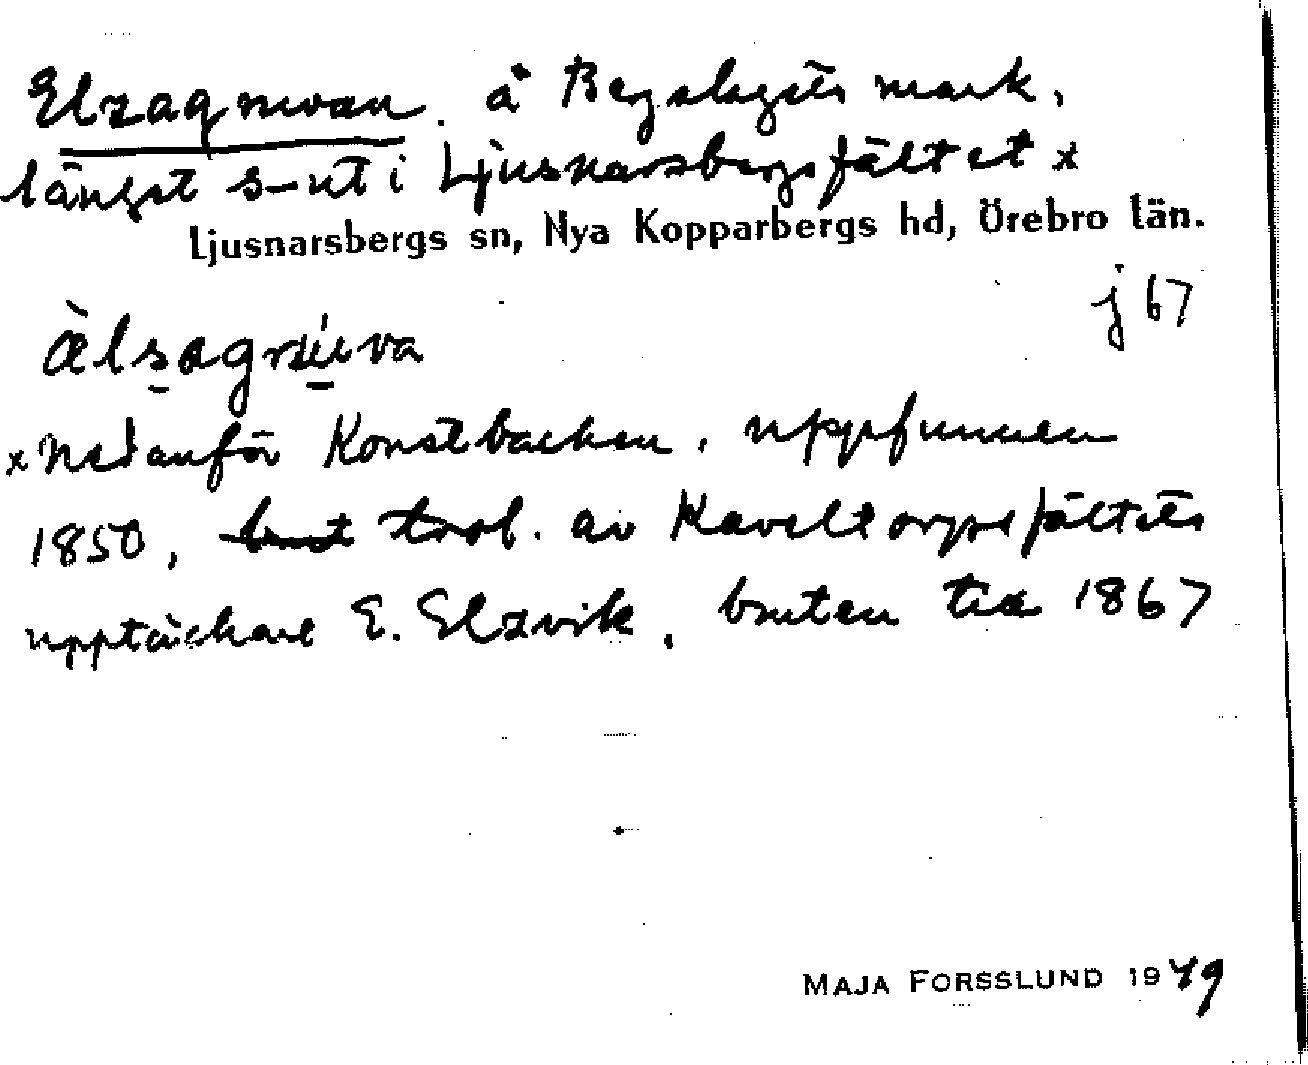 Elzagruvan. å Bergslagets mark,
längst s-ut i Ljusnarsbergsfältet x
Ljusnarsbergs sn, Nya Kopparbergs hd, Örebro län.
j 67
älsagruva
x nedanför Konstbacken, uppfunnen
1850, av Kaveltorpsfältets
upptäckare E. Elzvik, bruten till 1867
MAJA FORSSLUND 1949